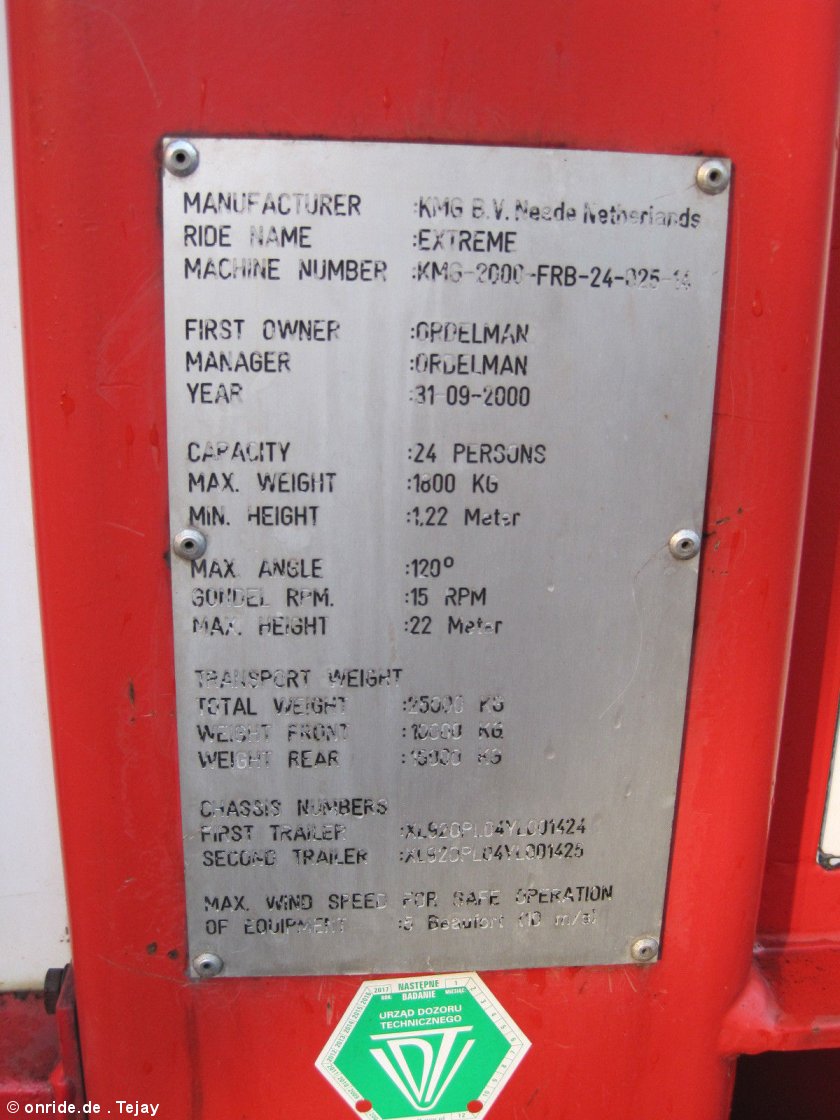 MANUFACTURER :KMG B.V. Neede Netherlands
RIDE NAME :EXTREME
MACHINE NUMBER :KMG-2000-FRB-24-025-14
FIRST OWNER :ORDELMAN
MANAGER :ORDELMAN
YEAR :31-09-2000
CAPACITY :24 PERSONS
MAX. WEIGHT :1800 KG
MIN. HEIGHT :1,22 Meter
MAX. ANGLE :120°
GONDEL RPM. :15 RPM
MAX. HEIGHT :22 Meter
TRANSPORT WEIGHT
TOTAL WEIGHT :25000 KG
WEIGHT FRONT :10000 KG
WEIGHT REAR :15000 KG
CHASSIS NUMBERS
FIRST TRAILER :XL920PL04YL001424
SECOND TRAILER :XL920PL04YL001425
MAX. WIND SPEED FOR SAFE OPERATION
OF EQUIPMENT :5 Beaufort (10 m/s)
2017 NASTĘPNE 1
ROK BADANIE MIESIĄC
URZĄD DOZORU
TECHNICZNEGO
UDT
© onride.de . Tejay